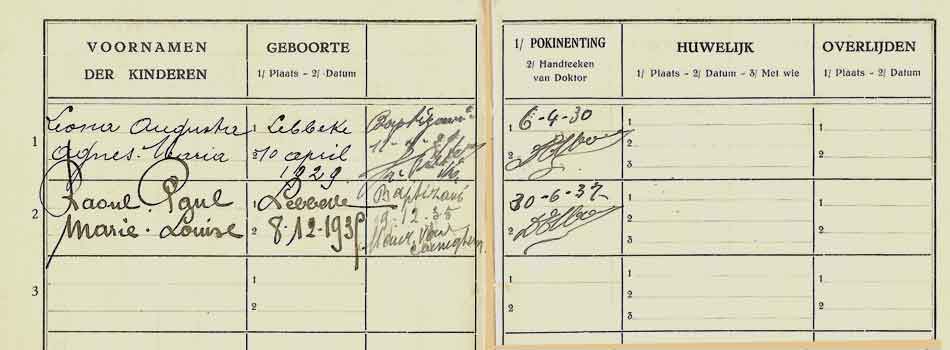 VOORNAMEN
DER KINDEREN
GEBOORTE
1/ Plaats - 2/ Datum
1/ POKINENTING
2/ Handteeken
van Doktor
HUWELIJK
1/ Plaats - 2/ Datum - 3/ Met wie
OVERLIJDEN
1/ Plaats - 2/ Datum
1
Leona Augusta
Agnes-Maria
1 Lebbeke
2 10 april
1929
Baptizavi
1 6-4-30
2
1
2
3
1
2
2
Raoul Paul
Marie-Louise
1 Lebbeke
2 8-12-1935
Baptizavi
19-12-35
1 30-6-37
2
1
2
3
1
2
3
1
2
1
2
1
2
3
1
2